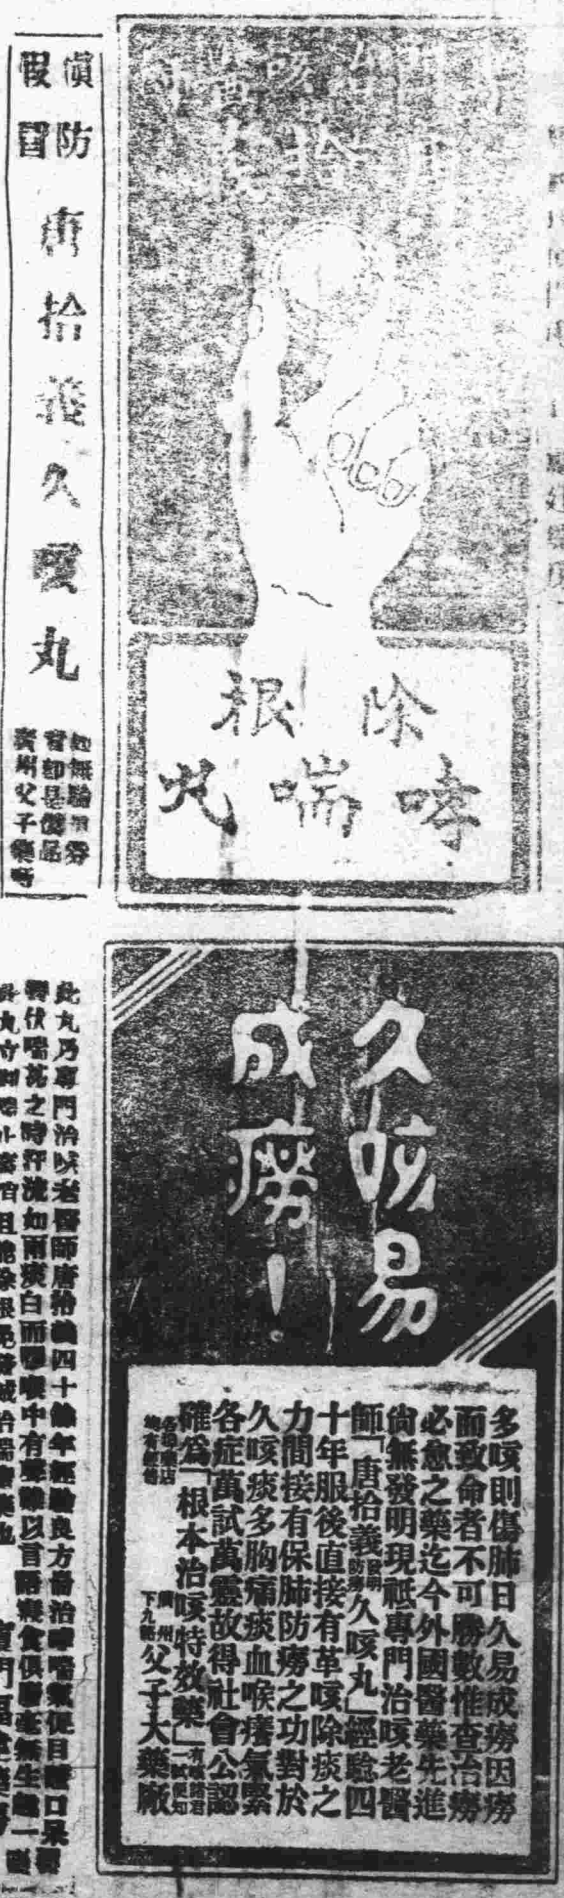 專門治咳醫師
唐拾義
除根
哮喘丸
慎防
假冒
唐拾義久咳丸
如無驗單券
者卽是僞品
廣州父子藥房
久咳易
成癆！
多咳則傷肺日久易成癆因癆
而致命者不可勝數惟查治癆
必愈之藥迄今外國醫藥先進
尙無發明現祗專門治咳老醫
師「唐拾義發明防癆久咳丸」經驗四
十年服後直接有革咳除痰之
力間接有保肺防癆之功對於
久咳痰多胸痛痰血喉癢氣緊
各症萬試萬靈故得社會公認
確爲「根本治咳特效藥」有咳諸君一試便知
各埠藥店均有經售
廣州下九路父子大藥廠
此丸乃專門治咳老醫師唐拾義四十餘年經驗良方善治哮喘氣促目瞪口呆
伏喘甚之時汗流如雨痰白而喉中有聲難以言語寢食俱廢毫無生趣一